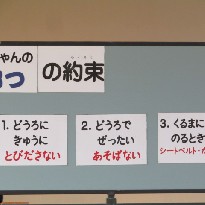 ゃんの
つ の約束
1. どうろに
きゅうに
とびださない
2. どうろで
ぜったい
あそばない
3. くるまに
のるとき
シートベルト・